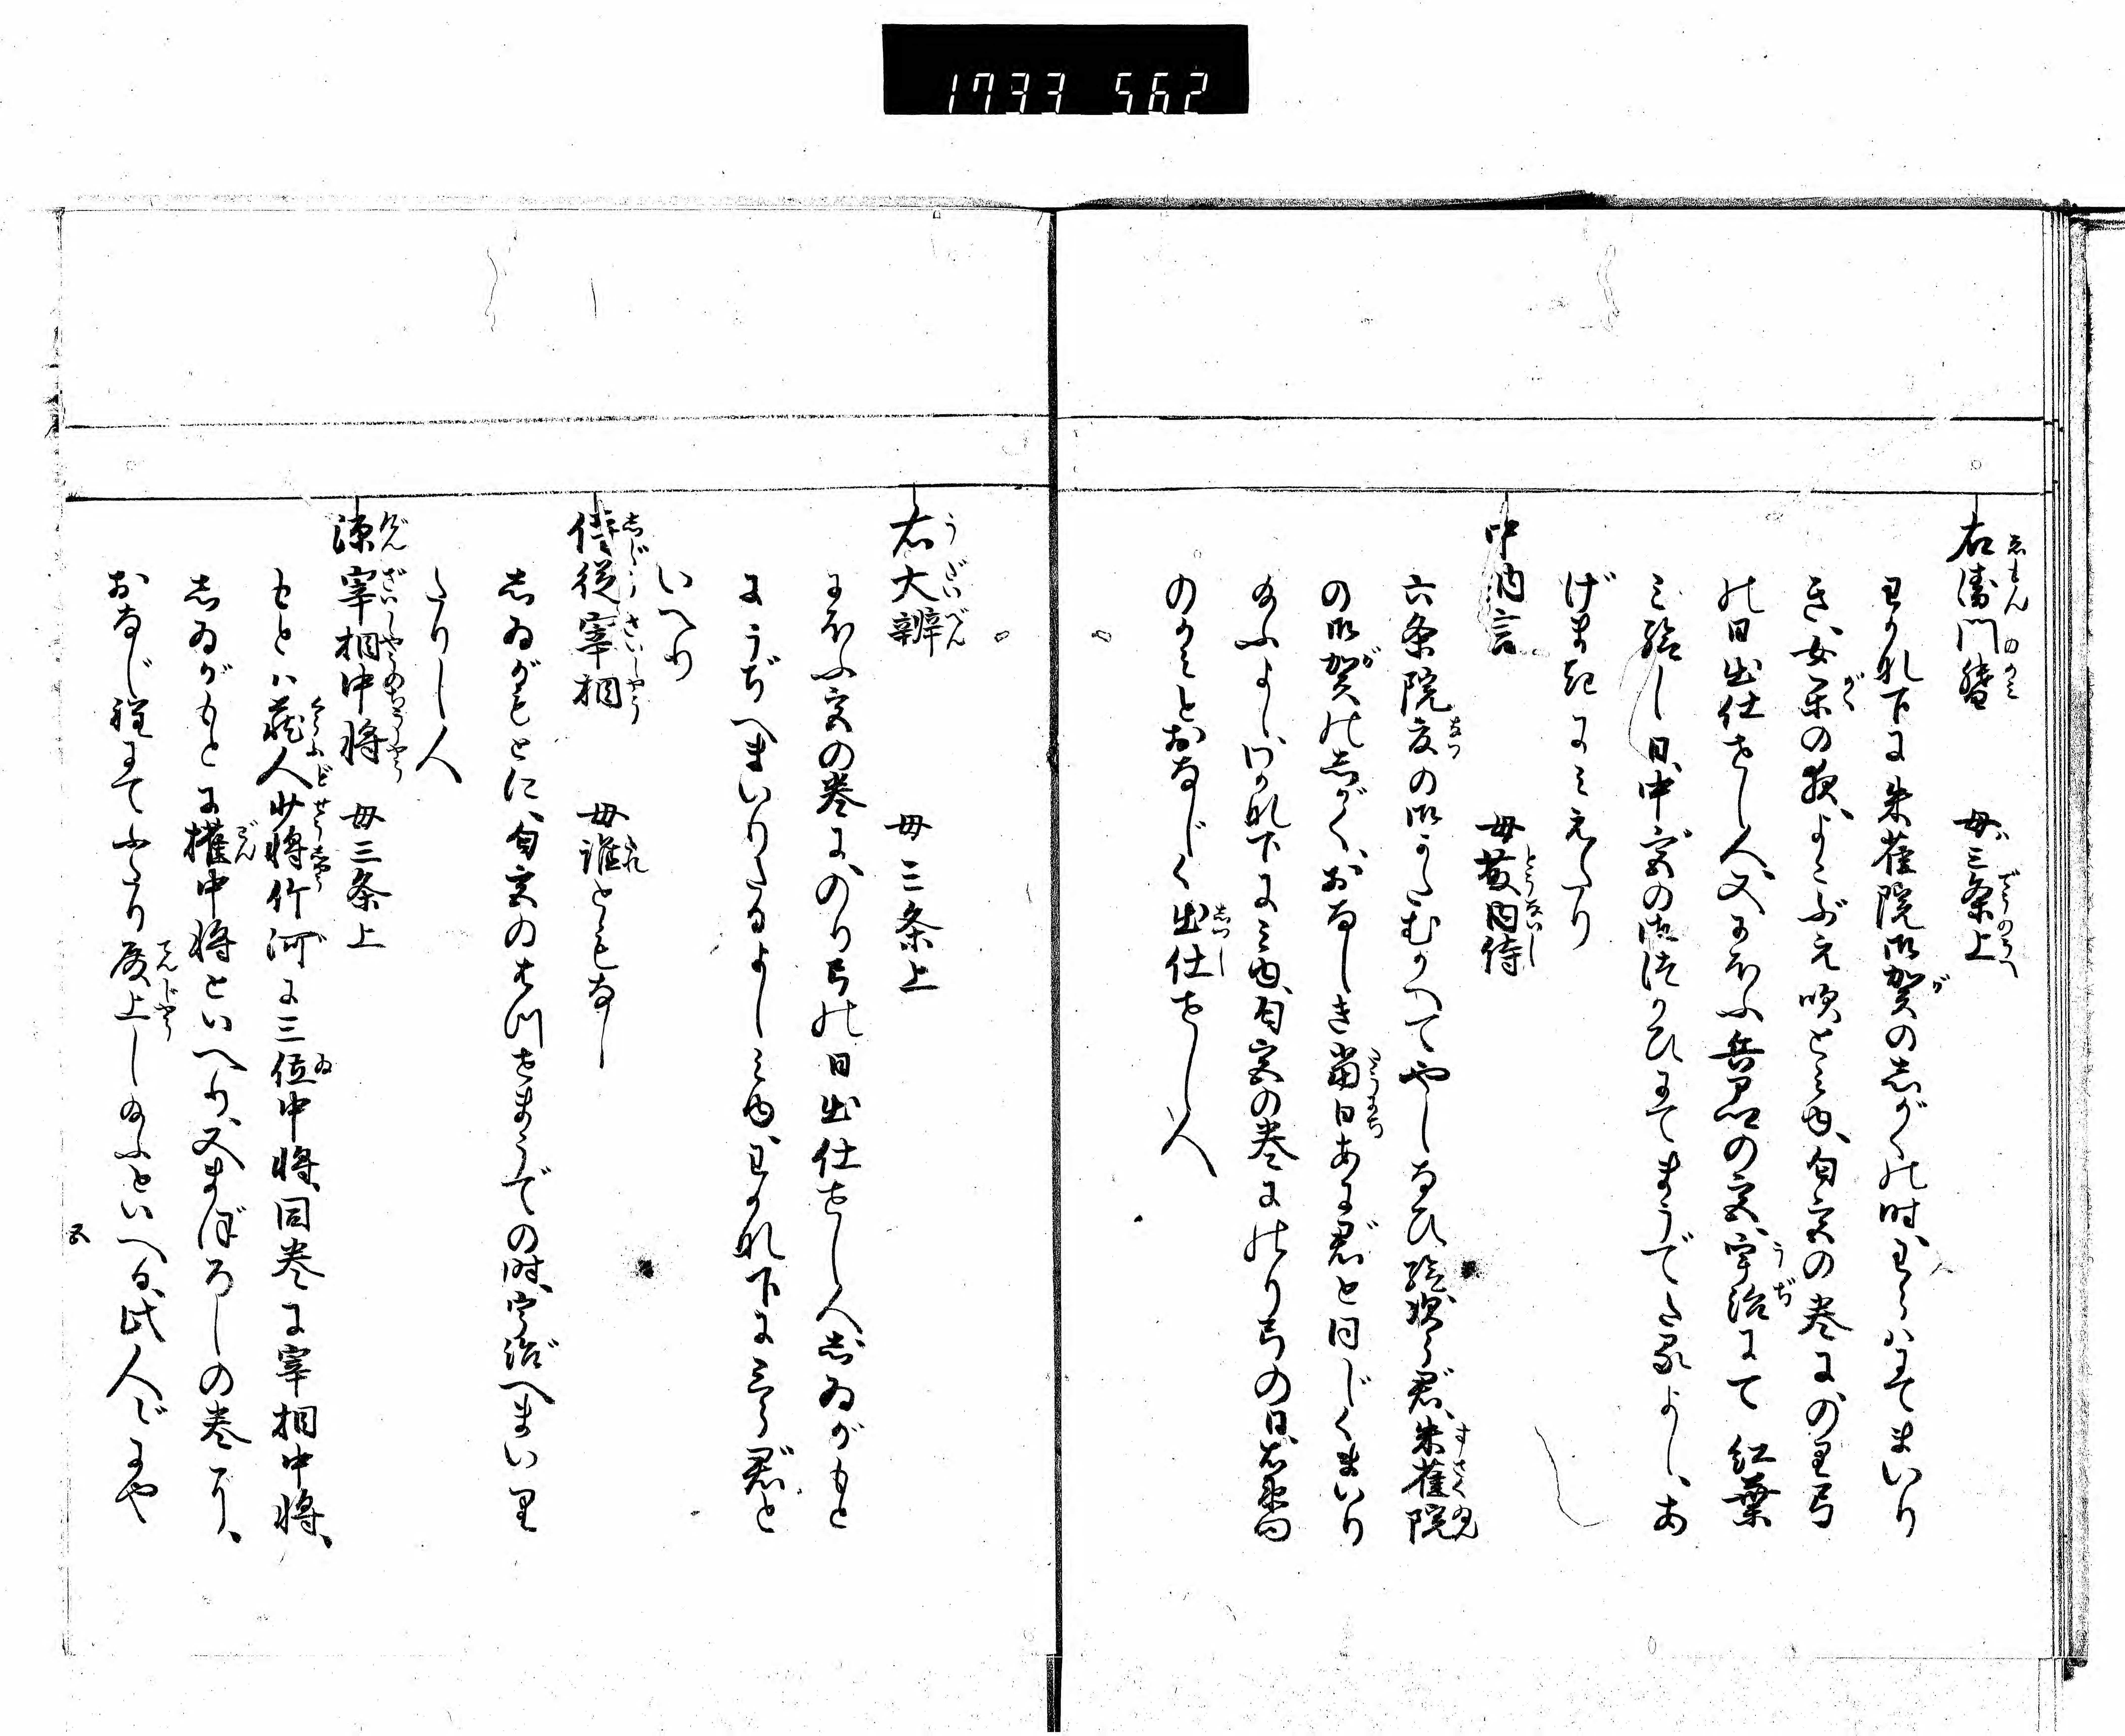 1733 562
右衛門督 母三条上
わかれ下に朱雀院御賀のしがくの時、わらはにてまいり
き、女楽の夜、よこぶえ吹とみゆ、匂宮の巻に、のり弓
の日出仕せし人、又にほふ兵部の宮、宇治にて紅葉
み給し日、中宮の御つかひにてまうでたるよし、あ
げまきにみえたり
中納言 母藤内侍
六条院夏の御かたむかへてやしなひ給次郎君、朱雀院
の御賀のしがく、おなしき当日あに君と同じくまいり
給ふよし、わかれ下にみゆ、匂宮の巻にのり弓の日、右衛門
のかみとおなじく出仕せし人
右大辨 母三条上
にほふ宮の巻に、のり弓の日出仕せし人しゐがもと
にうぢへまいりたるよしみゆ、わかれ下に三らう君と
いへり
侍従宰相 母誰ともなし
しゐがもとに、匂宮のはつせまうでの時、宇治へまいり
たりし人
源宰相中将 母三条上
もとハ蔵人少将竹河に三位中将、同巻に宰相中将、
しゐがもとに権中将といへり、又まぼろしの巻に、
おなじ程にてふたり殿上し給ふといへる、此人にや
五